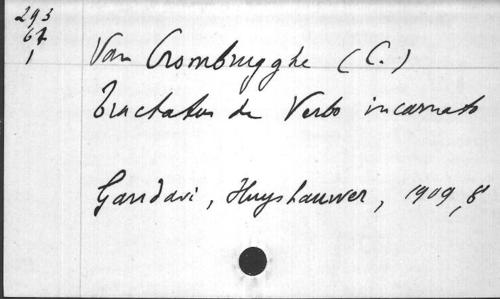 293
67
1
Van Crombrugghe (C.)
Tractatus de Verbo incarnato
Gandavi, Huyshauwer, 1909, 8°